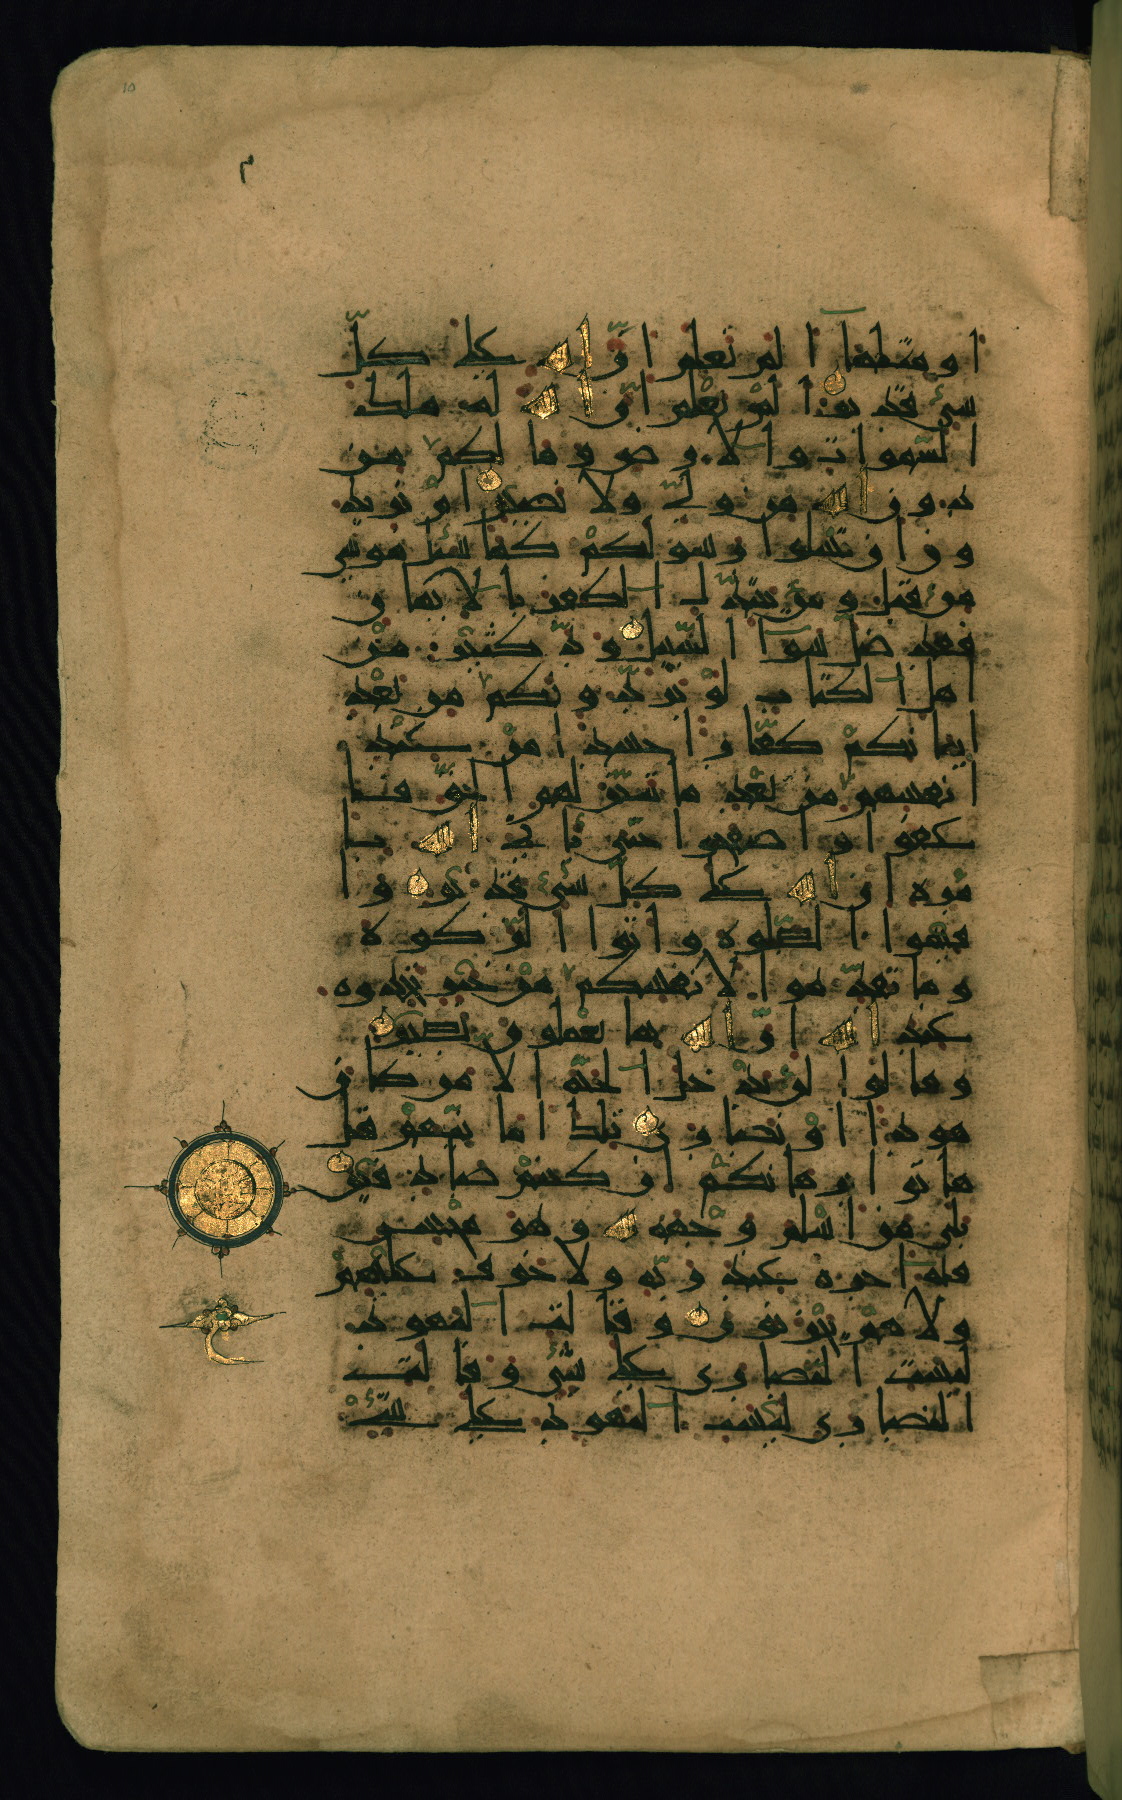 10
او مثلها الم تعلم ان الله على كل
شيء قدير الم تعلم ان الله له ملك
السموات والارض وما لكم من
دون الله من ولي ولا نصير ام تريد
ون ان تسلوا رسولكم كما سئل موسى
من قبل ومن يتبدل الكفر بالايمان
فقد ضل سوآ السبيل ود كثير من
اهل الكتاب لو يردونكم من بعد
ايمانكم كفارا حسدا من عند
انفسهم من بعد ما تبين لهم الحق فا
عفوا واصفحوا حتى ياتي الله با
مره ان الله على كل شيء قدير وا
قيموا الصلوه واتوا الزكوه
وما تقدموا لانفسكم من خير تجدوه
عند الله ان الله بما تعملون بصير
وقالوا لن يدخل الجنه الا من كان
هودا او نصارى تلك امانيهم قل
هاتوا برهانكم ان كنتم صادقين
بلى من اسلم وجهه لله وهو محسن
فله اجره عند ربه ولا خوف عليهم
ولا هم يحزنون وقالت اليهود
ليست النصارى على شيء وقالت
النصارى ليست اليهود على شيء